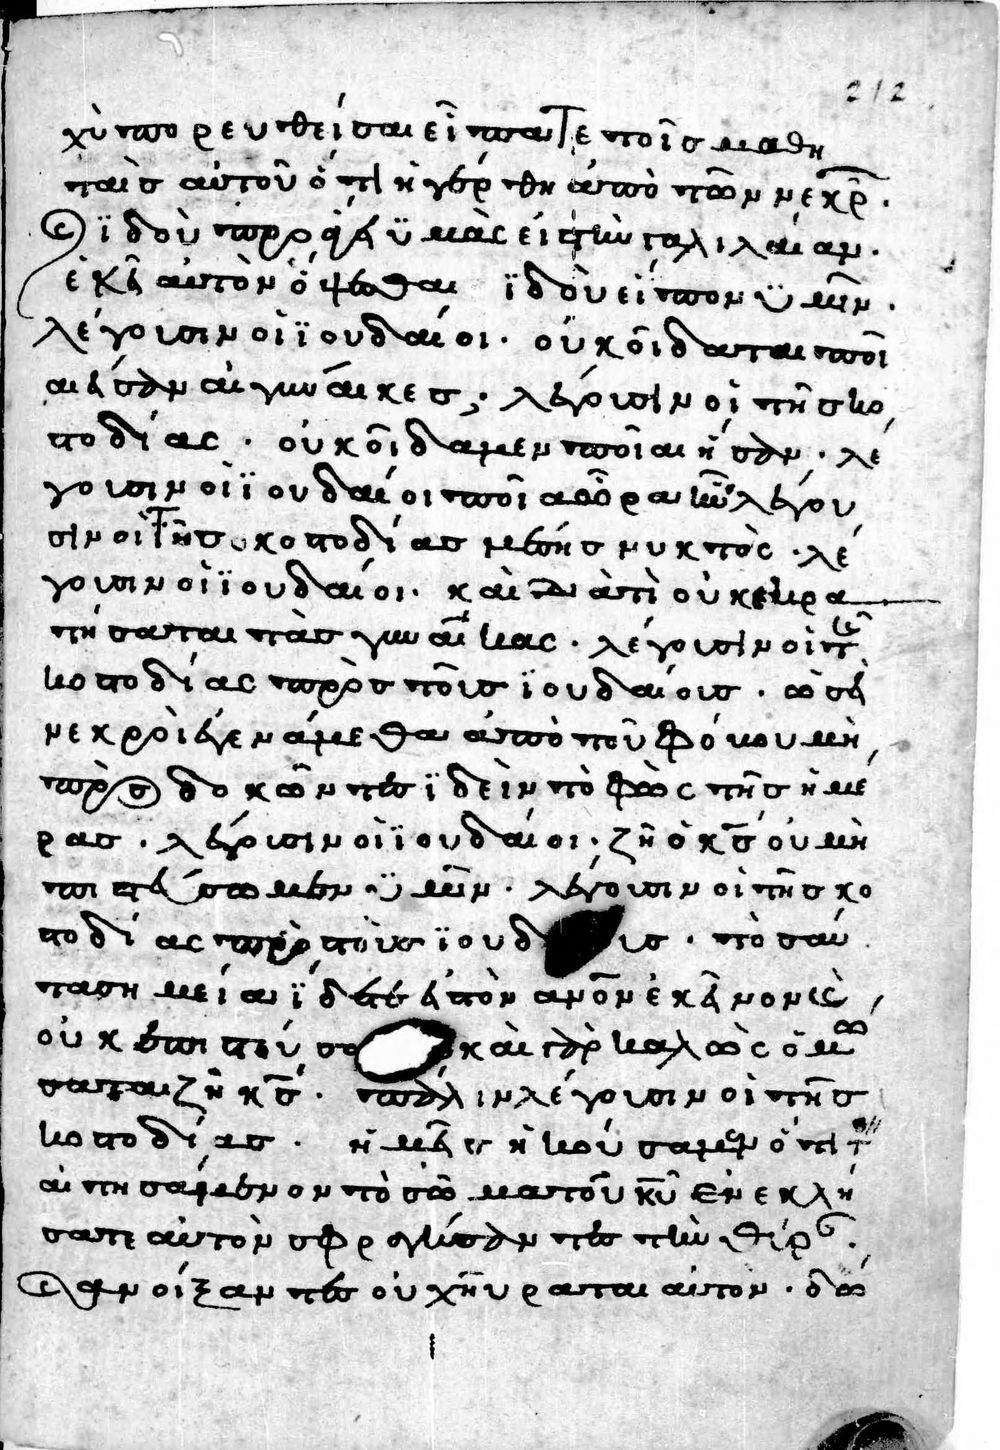 212
χὺ πορευθεῖσαι εἴπατε τοῖς μαθη
ταῖς αὐτοῦ ὅτι ἠγέρθη ἀπὸ τῶν νεκρ̅.
ϊδοὺ προάγει ϋμᾶς εἰς τὴν γαλιλαίαν.
ἐκεῖ αὐτὸν ὄψεσθαι ϊδοὺ εἶπον ϋμῖν.
λέγουσιν οἱ ϊουδαίοι. οὐκ οἴδαται ποῖ
αι εἶσαν αἱ γυναίκες; λέγουσιν οἱ τῆς κο
τοδίας. οὐκ οἴδαμεν ποῖαι ἦσαν. λέ
γουσιν οἱ ϊουδαίοι ποῖα ὥρα ἦν λέγου
σιν οἱ τῆς κοτοδίας μέσης νυκτὸς. λέ
γουσιν οἱ ϊουδαίοι. καὶ διατὶ οὐκ ἐκρα
τήσαται τὰς γυναίκας. λέγουσιν οἱ τ̅
κοτοδίας πρὸς τοῖς ϊουδαίοις. ὡσεὶ
νεκροὶ ἐγενάμεθα ἀπὸ τοῦ φόκου μὴ
προσδοκῶντες ϊδεῖν τὸ φῶς τῆς ἡμέ
ρας. λέγουσιν οἱ ϊουδαίοι. ζῆ ὁ κ̅ς̅ οὐ μὴ
πιστεύσωμεν ϋμῖν. λέγουσιν οἱ τῆς κο
τοδίας πρὸ τοῖς ϊουδ ις. τὸ σαύ
τα σημεία ϊδετε εἰς τὸν ανον ἐκεῖνον
οὐκ ἐπιστεύσα καὶ γὰρ καλῶς ὀμω
σαται ζῆ κ̅ς̅. πάλιν λέγουσιν οἱ τῆς
κοτοδίας. ἡμεῖς ἠκούσαμεν ὅτι τ
αἰτησάμενον τὸ σῶμα τοῦ κ̅υ̅ ἐνεκλή
σατε αὐτὸν σφραγίσαντες τὴν θύρ.
ἀνοίξαντες οὐχ ηὕραται αὐτον. δω